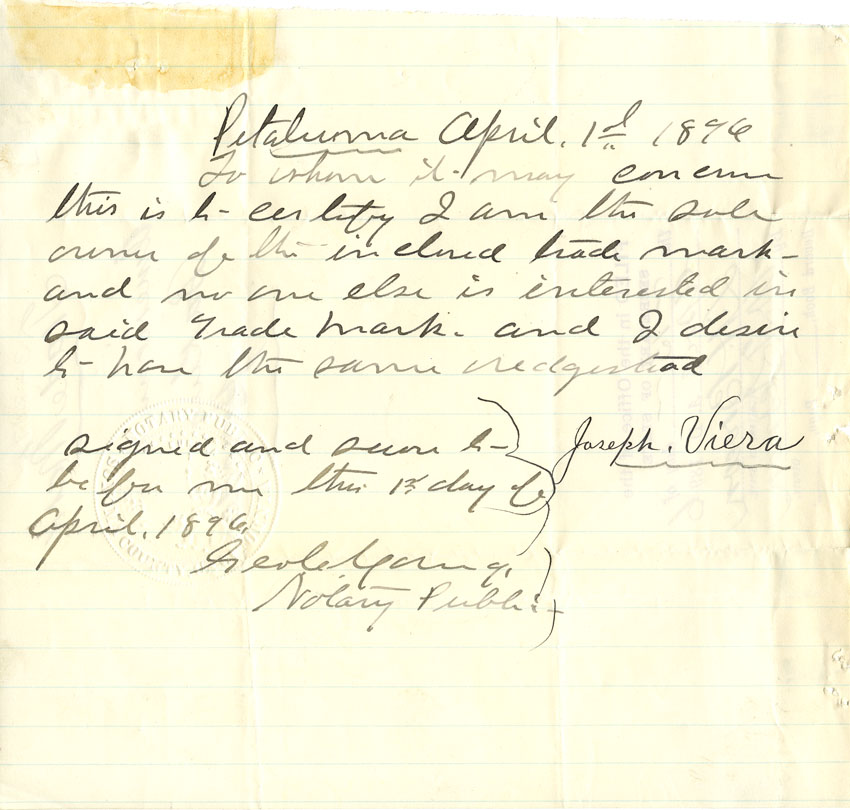 Petaluma April. 1st 1896
To whom it may concern
this is to certify I am the sole
owner of the inclosed trade mark
and no one else is interested in
said Trade Mark. and I desire
to have the same
signed and sworn to
before me this 1st day of
April. 1896.
Joseph. Viera
Notary Public
NOTARY PUBLIC
COUNTY